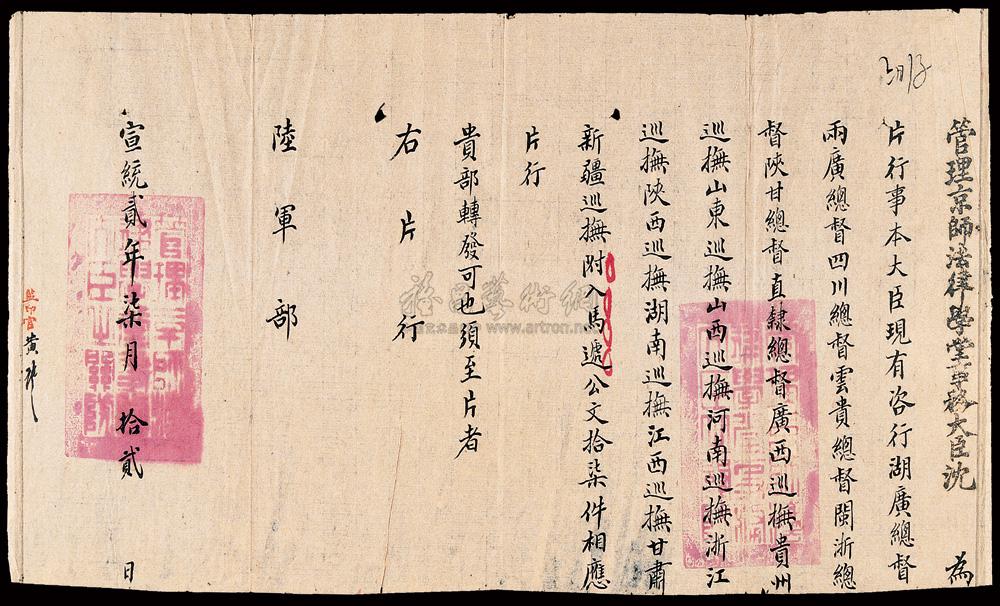 管理京師法律學堂事務大臣沈 為
片行事本大臣現有咨行湖廣總督
兩廣總督四川總督雲貴總督閩浙總
督陝甘總督直隸總督廣西巡撫貴州
巡撫山東巡撫山西巡撫河南巡撫浙江
巡撫陝西巡撫湖南巡撫江西巡撫甘肅
新疆巡撫附入馬遞公文拾柒件相應
片行
貴部轉發可也須至片者
右片行
陸軍部
宣統貳年柒月 拾貳 日
監印官黃
www.artron.net